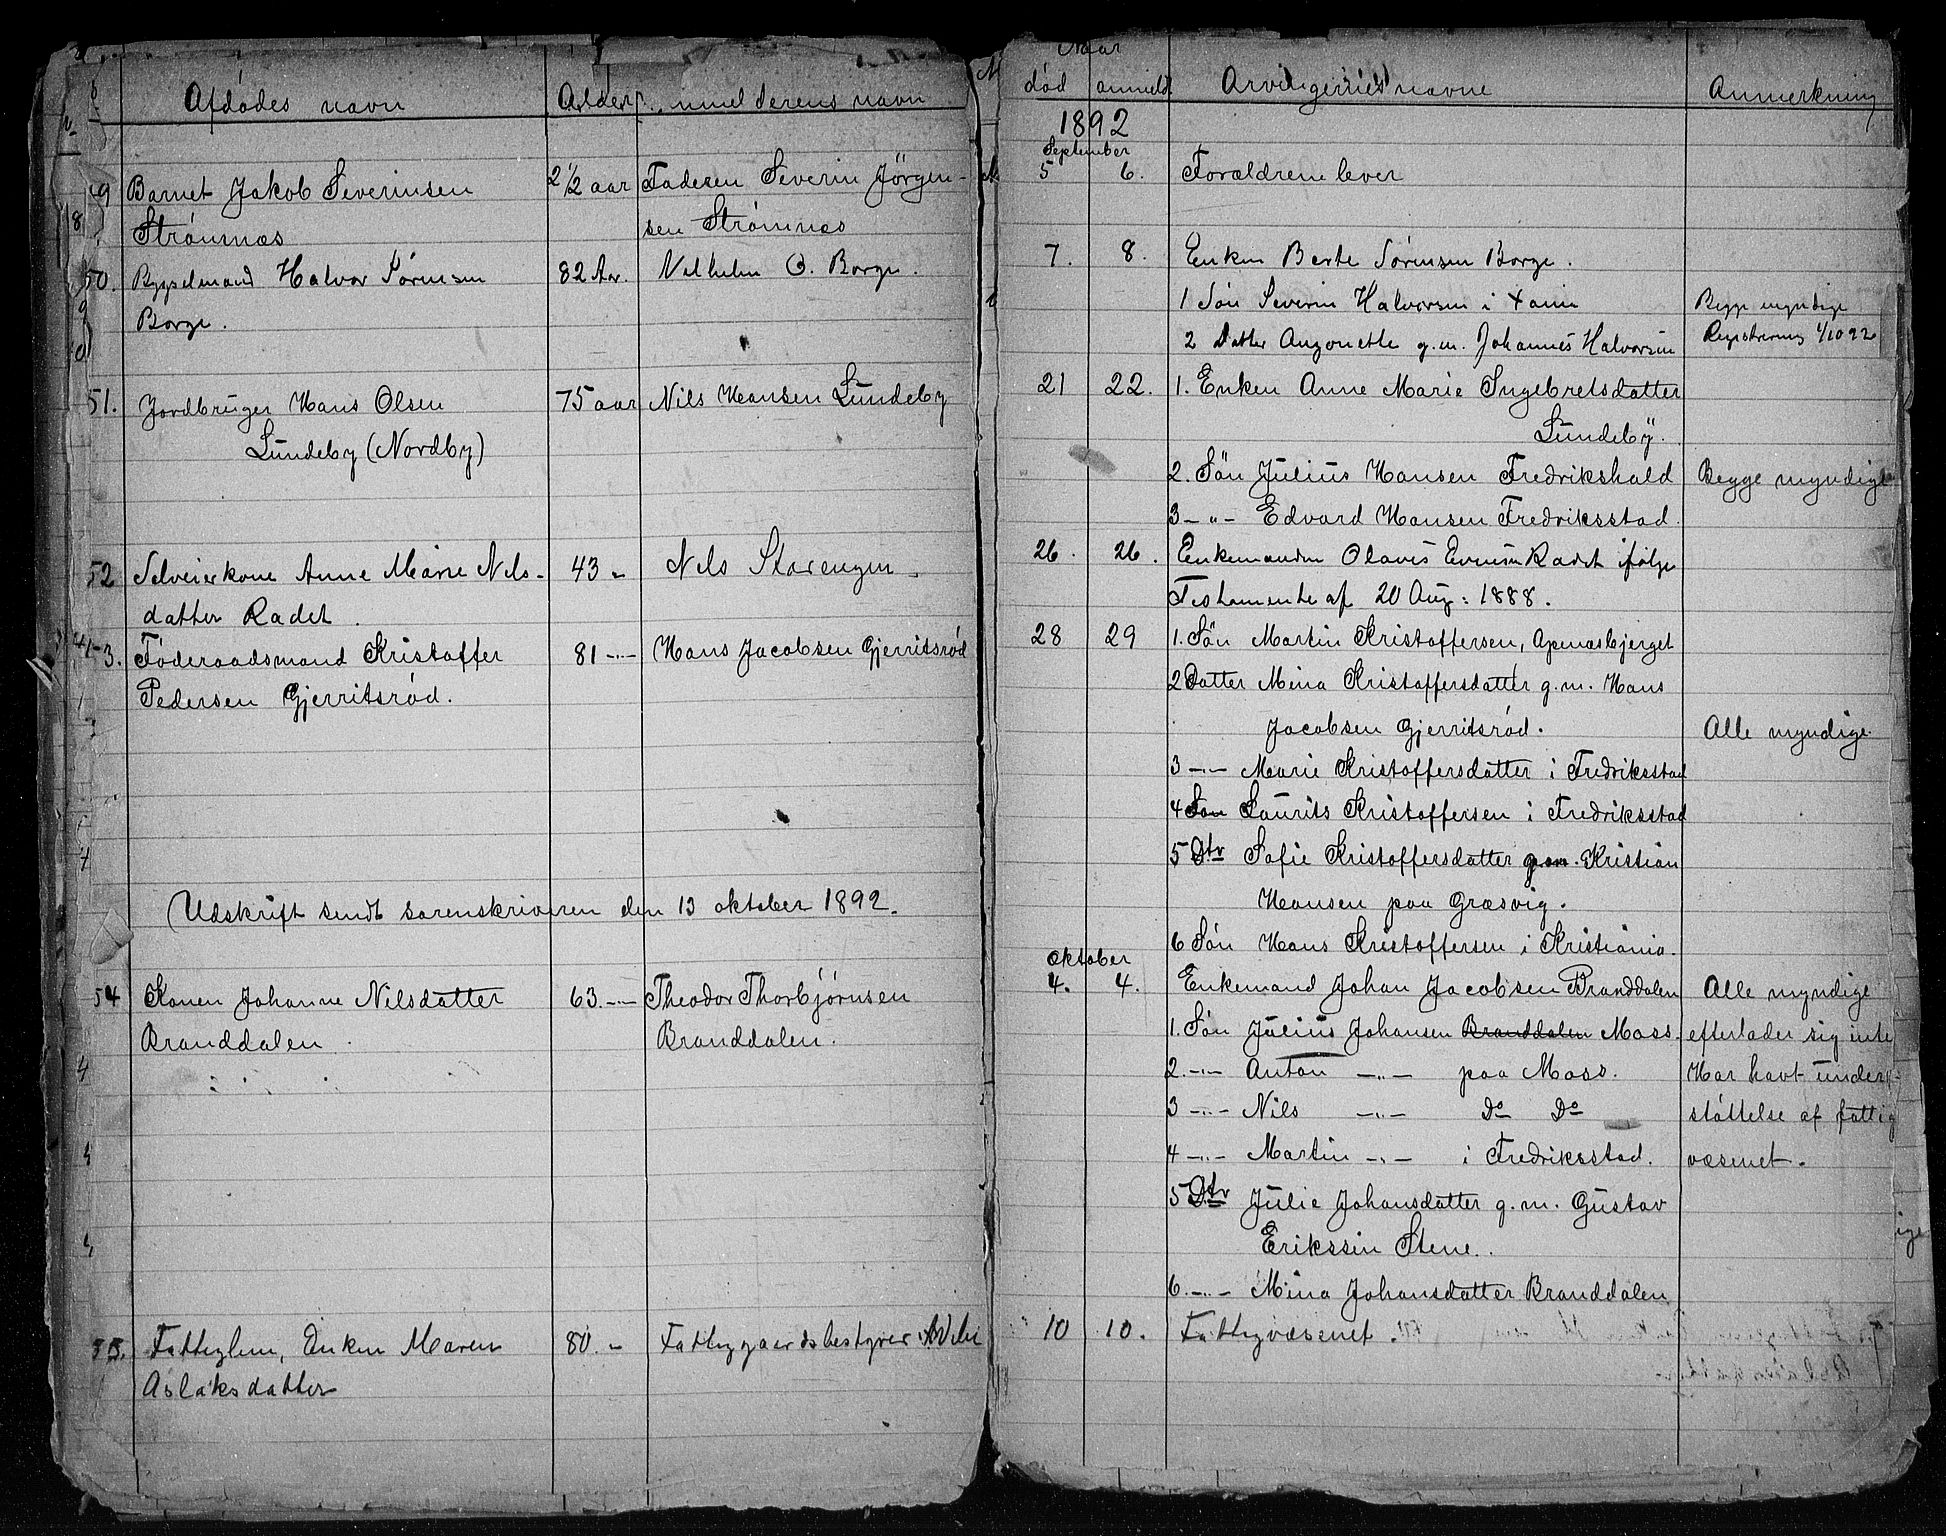 Afdødes navn
Alder
anmelderens navn
49 Barnet Jakob Severinsen 2½ aar Faderen Severin Jörgen-
Strömnæs sen Strömnæs
50. Bygselmand Halvor Sörensen 82 Aar. Vilhelm O. Borge.
Borge.
51. Jordbruger Hans Olsen 75 aar Nils Hansen Lundeby
Lundeby (Nordby)
52 Selveierkone Anne Marie Nils- 43 -„- Nils Storengen.
datter Radet.
53. Föderaadsmand Kristoffer 81 -„- Hans Jacobsen Gjerritsröd
Pedersen Gjerritsröd.
Udskrift sendt sorenskriveren den 13 oktober 1892.
54 Konen Johanne Nilsdatter 63. -„- Theodor Thorbjörnsen
Branddalen. Branddalen.
55. Fattiglem, Enken Maren 80. -„- Fattiggaardsbestyrer
Aslaksdatter
Naar
död anmeldt Arvingernes navne Anmerkning
1892
September
5 6. Forældrene lever
7. 8. Enken Berte Sörensen Borge.
1 Sön Severin Halvorsen i Xania Begge myndige
2 Datter Angonette g.m. Johannes Halvorsen Registrering 4/10 92
21 22. 1. Enken Anne Marie Ingebretsdatter
Lundeby.
2. Sön Julius Hansen Fredrikshald Begge myndige
3 -„- Edvard Hansen Fredriksstad.
26. 26. Enkemanden Olaves Evensen Radet ifölge
Testamente af 20 Aug: 1888.
28 29 1. Sön Martin Kristoffersen, Apenæsbjerget
2 Datter Mina Kristoffersdatter g.m. Hans
Jacobsen Gjerritsröd. Alle myndige
3 -„- Marie Kristoffersdatter i Fredriksstad
4 Sön Laurits Kristoffersen i Fredriksstad
5 Dtr Sofie Kristoffersdatter g.m. Kristian
Hansen paa Græsvig.
6 Sön Hans Kristoffersen i Kristiania.
oktober
4. 4. Enkemand Johan Jacobsen Branddalen Alle myndige
1. Sön Julius Johansen Branddalen Moss. efterlader sig inte
2. -„- Anton -„- paa Moss. Har havt under-
3 -„- Nils -„- Do Do stöttelse af fattig
4 -„- Martin -„- i Fredriksstad. væsenet.
5 Dtr Julie Johansdatter g.m. Gustav
Erikssen Stene.
6. -„- Mina Johansdatter Branddalen
10 10. Fattigvæsenet.